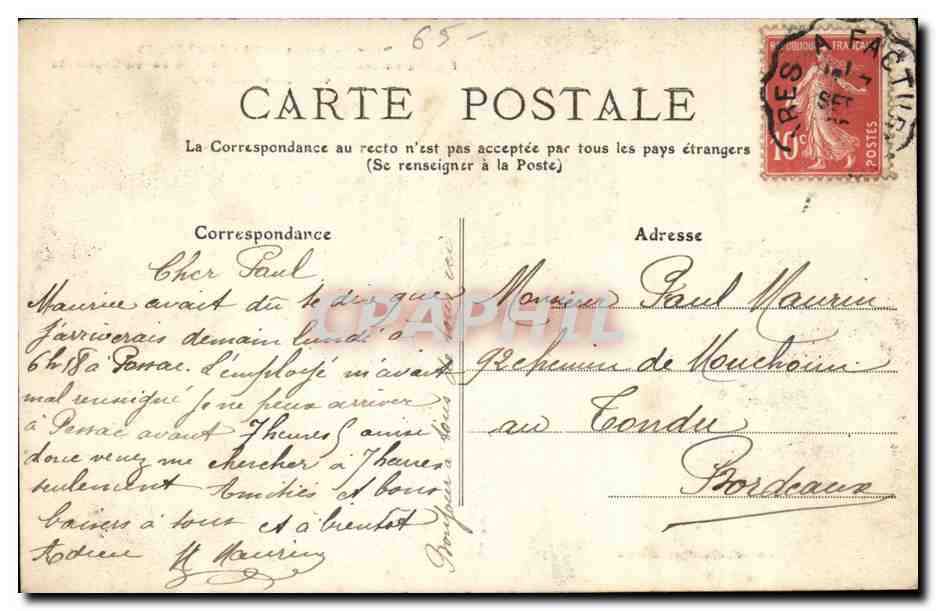 65-
CARTE POSTALE
La Correspondance au recto n'est pas acceptée par tous les pays étrangers
(Se renseigner à la Poste)
REPUBLIQUE FRANÇAISE
10c
POSTES
ARES A FACTURE
SEPT
Correspondance
Cher Paul
Maurice avait du te dire que
j'arriverais demain lundi à
6h18 à Pessac. L'employé m'avait
mal renseigné je ne peux arriver
à Pessac avant 7 heures ainsi
donc venez me chercher à 7 heures
seulement Amitiés et bons
baisers à tous et à bientôt
Adieu M Maurin
Bonjour à tous
Adresse
Monsieur Paul Maurin
92 chemin de Mouchoim
au Tondu
Bordeaux
CPAPHIL